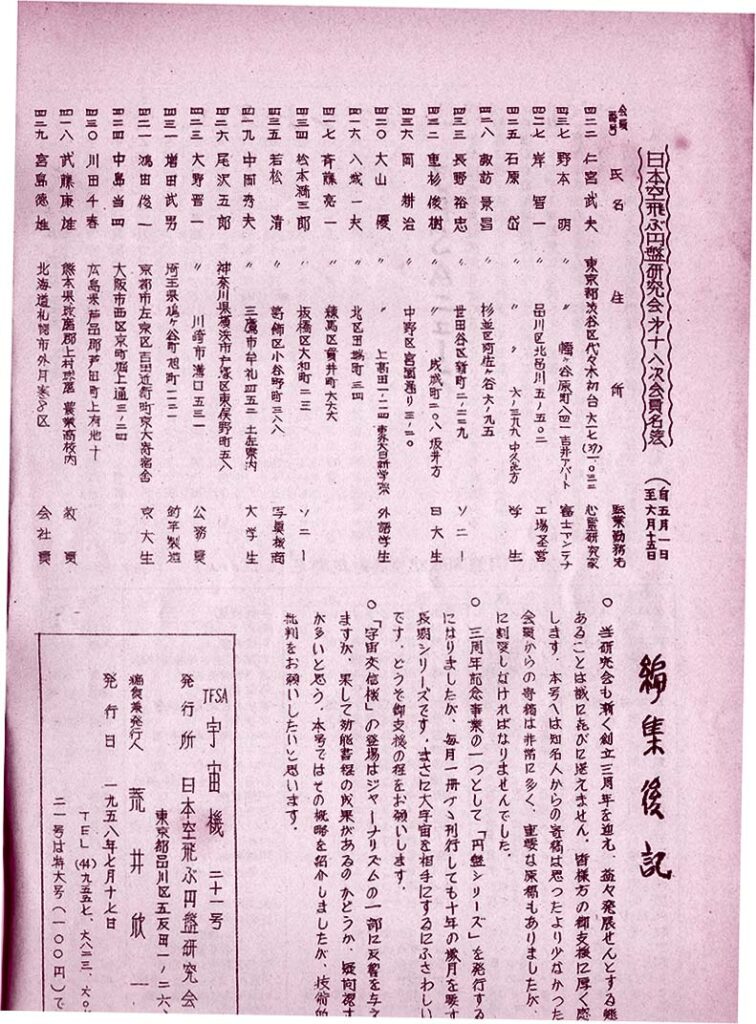 日本空飛ぶ円盤研究会才十八次会員名簿
(自五月一日
至六月十五日)
会員番号 氏名 住所 職業勤務先
四二二 仁宮武夫 東京都渋谷区代々木初台
四三七 野本明 〃 幡ヶ谷原町八四一 吉井アパート 富士アンテナ
四二七 岸智一 品川区北品川五ノ五〇二 工場経営
四二五 石原岱 〃 〃 大ノ三九九 学生
四二八 諏訪景昌 杉並区阿佐ヶ谷六ノ九五
四三三 長野裕忠 〃 世田谷区新町二ノ二二九 ソニー
四三二 重杉俊樹 〃 〃 成城町二〇八 坂井方 日大生
四三六 岡耕治 〃 中野区宮園通り三ノ二〇
四二〇 大山優 〃 〃 上高田一ノ二四 外語学生
四一六 八城一夫 〃 北区田端町三四
四一七 斉藤亮一 〃 練馬区貫井町六六六
四三四 松本満三郎 〃 板橋区大和町二三 ソニー
四三五 若松清 〃 葛飾区小谷野町三八八 写真機商
四一九 中岡秀夫 〃 三鷹市牟礼四五二 土左寮内 大学生
四二六 尾沢五郎 神奈川県横浜市戸塚区東俣野町五八
四二三 大野晋一 〃 川崎市溝口五三一 公務員
四三一 増田武男 埼玉県鳩ヶ谷町旭町一二一 釣竿製造
四二一 鴻田俊一 京都市左京区吉田近衛町京大寄宿舎 京大生
四二四 中島当四 大阪市西区京町堀上通三ノ二四
四三〇 川田千春 広島県芦品郡芦田町上有地
四一八 武藤康雄 熊本県 農業高校内 教員
四二九 宮島徳雄 北海道札幌市外月寒 会社員
編集後記
○ 当研究会も漸く創立三周年を迎え、益々発展せんとする
あることは誠に喜びに堪えません。皆様方の御支援に厚く
します。本号へは知名人からの寄稿は思ったより少なかった
会員からの寄稿は非常に多く、重要な原稿もありましたが、
に割愛しなければなりませんでした。
○ 三周年記念事業の一つとして「円盤シリーズ」を発行する
になりましたが、毎月一冊づゝ刊行しても十年の歳月を要す
長期シリーズです。まさに大宇宙を相手にするにふさわしい
です。どうぞ御支援の程をお願いします。
○ 「宇宙交信機」の登場はジャーナリズムの一部に反響を与え
ますが、果して効能書程の成果があるのかどうか、疑問視す
が多いと思う。本号ではその概略を紹介しましたが、技術的
批判をお願いしたいと思います。
JFSA 宇宙機 二十一号
発行所 日本空飛ぶ円盤研究会
東京都品川区五反田一ノ二六、
編集兼発行人 荒井欣一
発行日 一九五八年七月十七日
TEL (44) 九五五七、六八二三、
二一号は特大号(一〇〇円)で